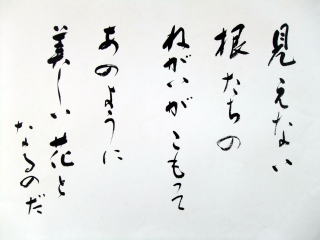 見えない
根たちの
ねがいがこもって
あのように
美しい花と
なるのだ